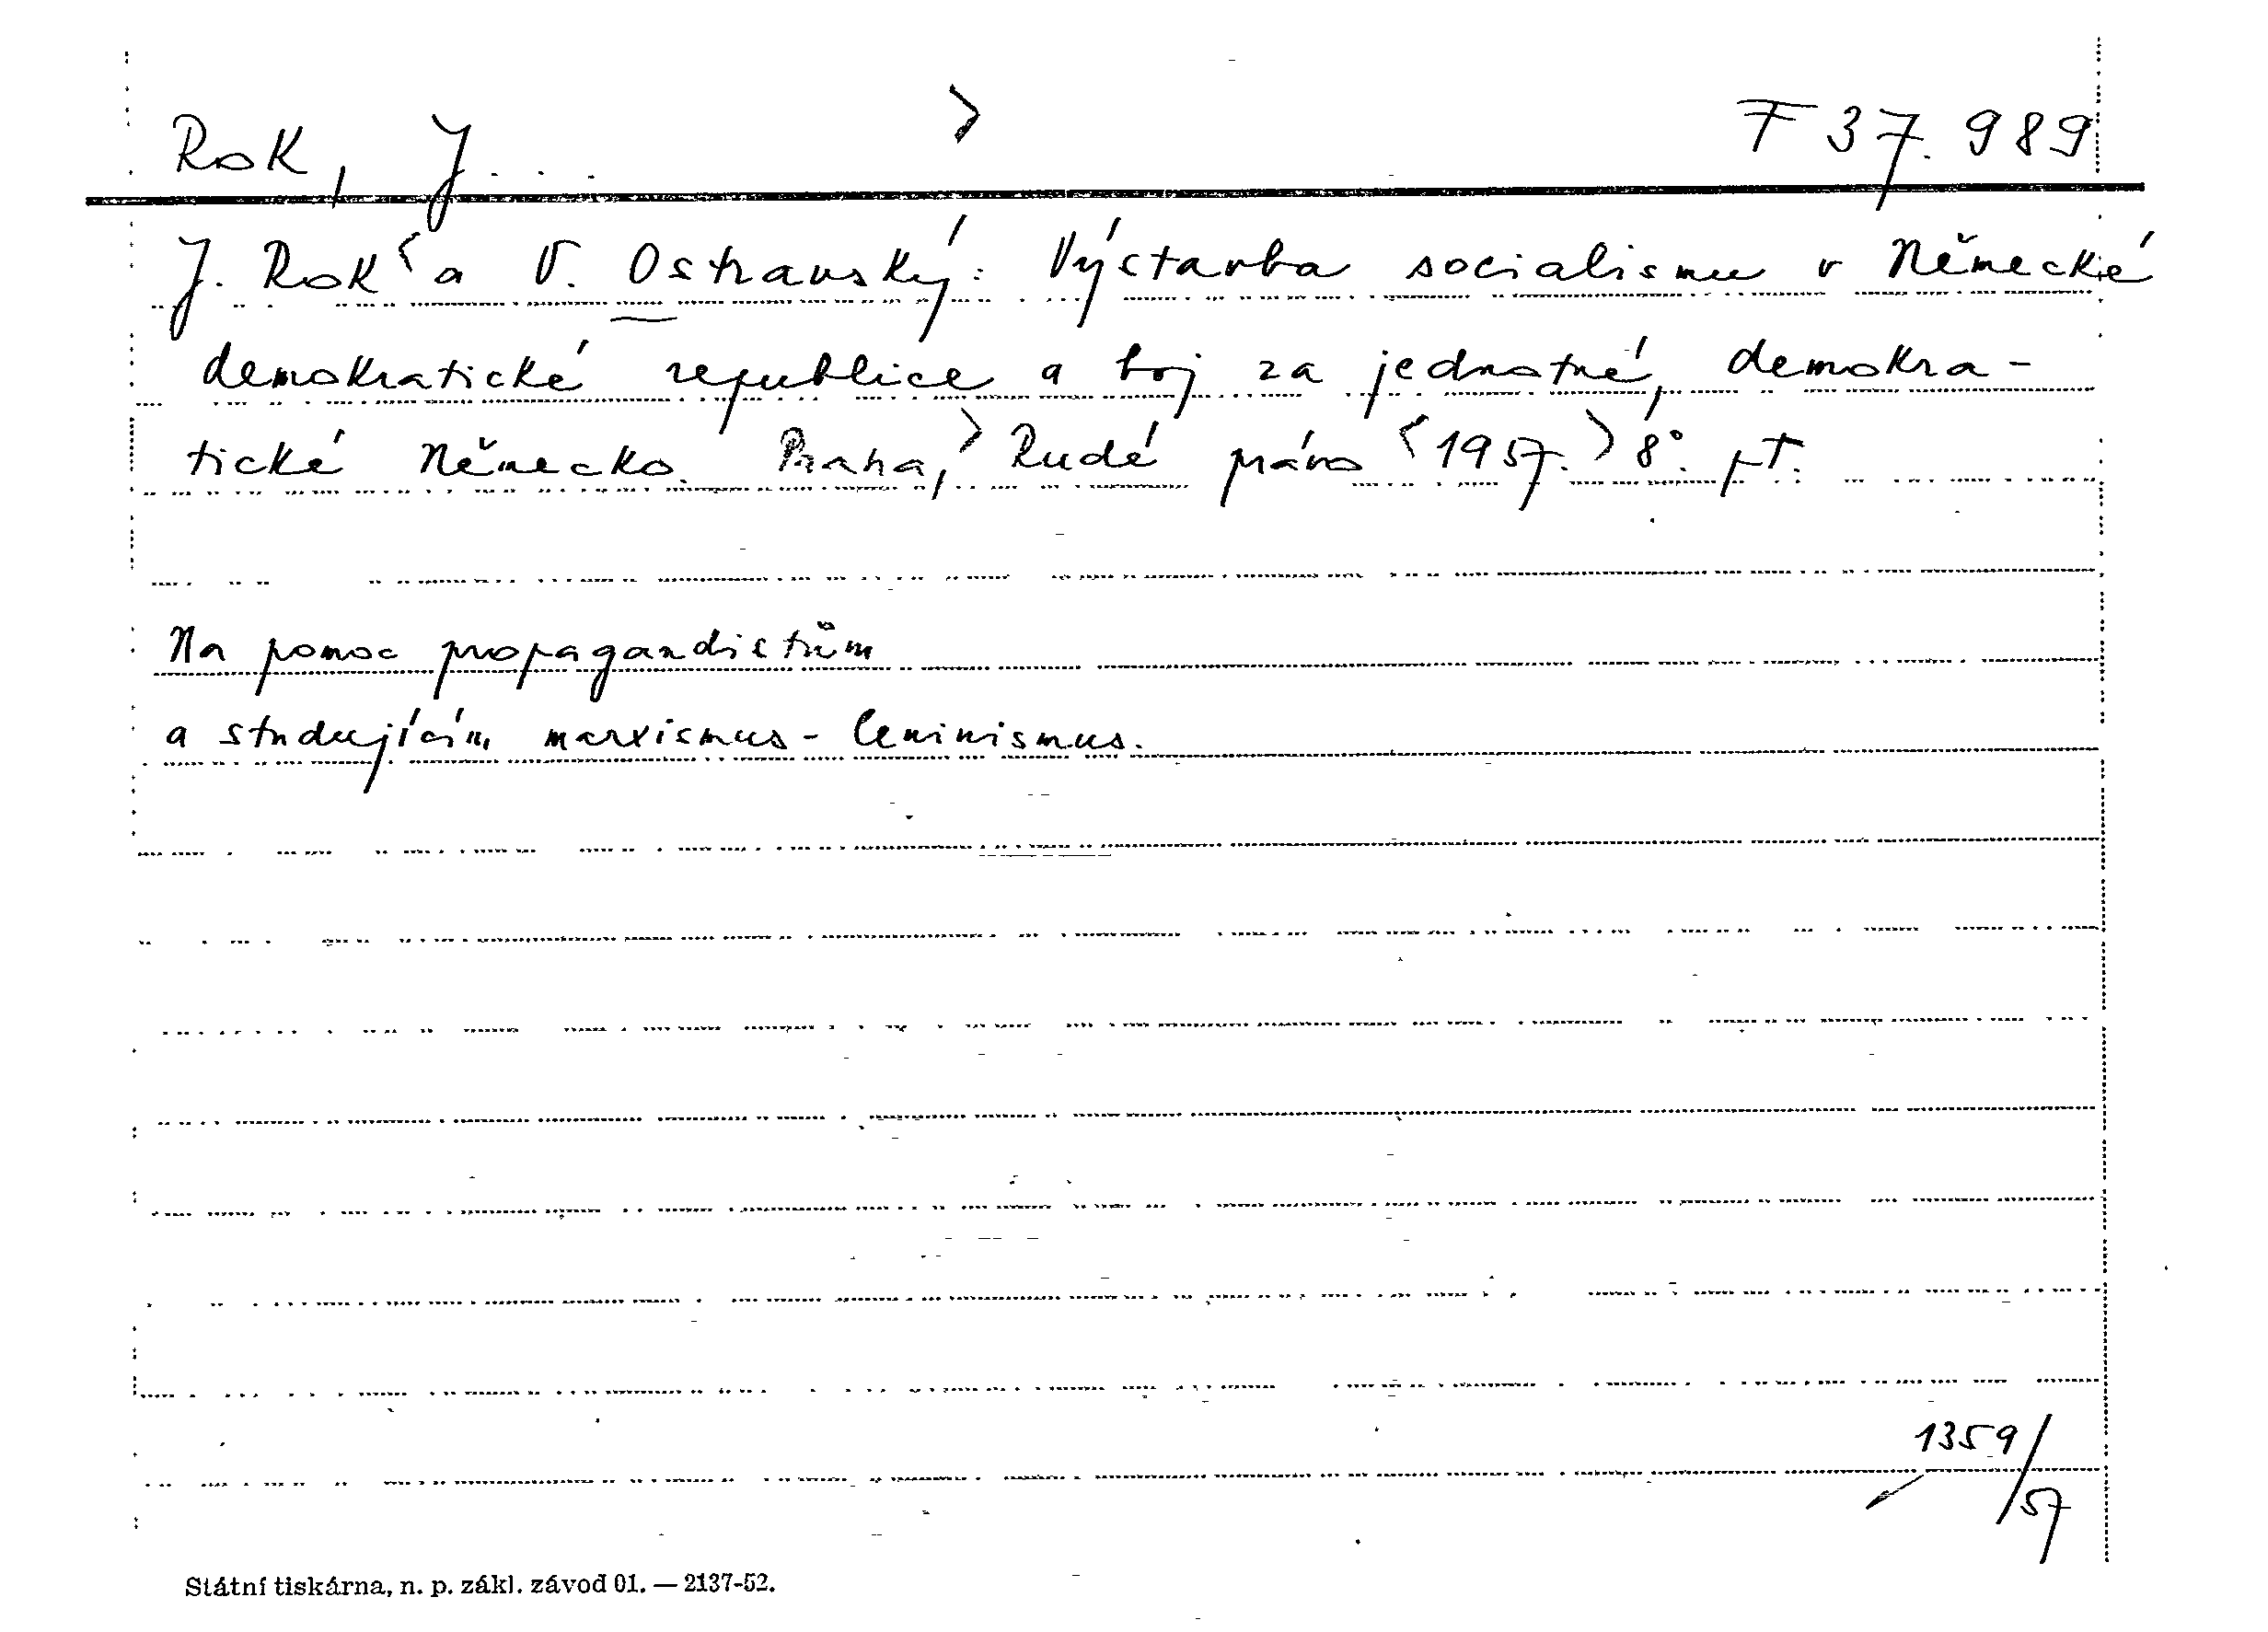 Rok, J... > F 37.989
J. Rok < a V. Ostravský: Výstavba socialismu v Německé
demokratické republice a boj za jednotné, demokra-
tické Německo. Praha, > Rudé právo < 1957. > 8°. pT.
Na pomoc propagandistům
a studujícím marxismus-leninismus.
1359/
57
Státní tiskárna, n. p. zákl. závod 01. — 2137-52.